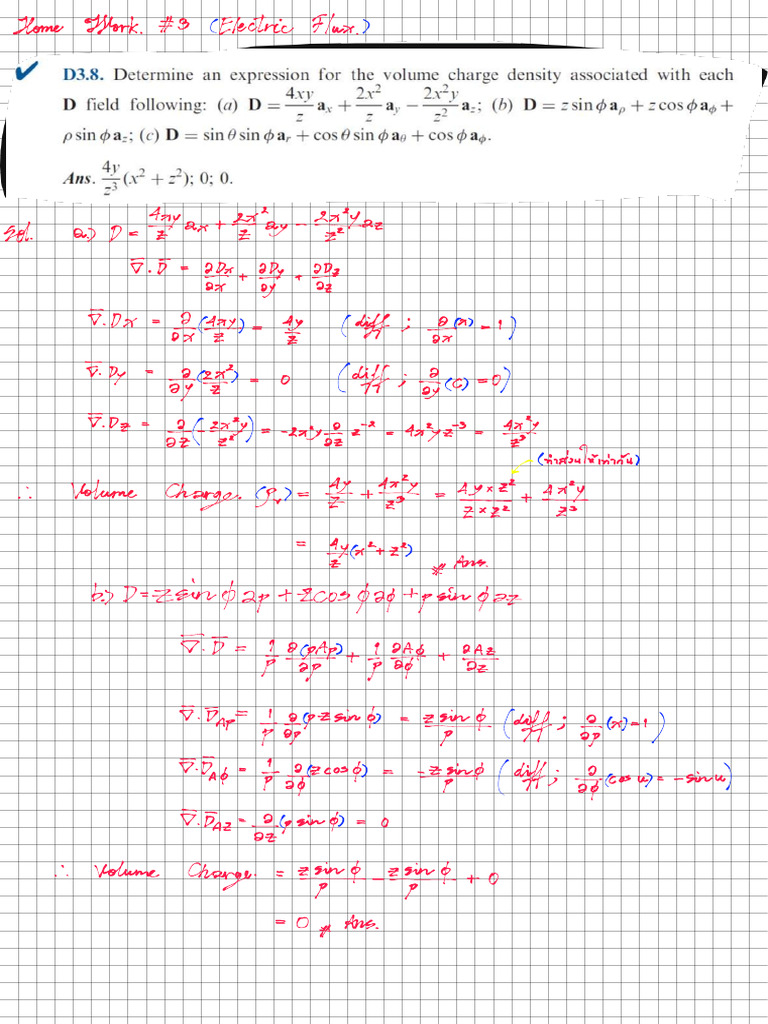 Home Work. #3 (Electric Flux.)
✔ D3.8. Determine an expression for the volume charge density associated with each
D field following: (a) D = 4xy/z a_x + 2x²/z a_y − 2x²y/z² a_z; (b) D = z sin ϕ a_ρ + z cos ϕ a_ϕ +
ρ sin ϕ a_z; (c) D = sin θ sin ϕ a_r + cos θ sin ϕ a_θ + cos ϕ a_ϕ.
Ans. 4y/z³ (x² + z²); 0; 0.
Sol. a.) D = 4xy/z ax + 2x²/z ay − 2x²y/z² az
∇̄.D̄ = ∂Dx/∂x + ∂Dy/∂y + ∂Dz/∂z
∇̄.Dx = ∂/∂x (4xy/z) = 4y/z (diff ; ∂/∂x (x) = 1)
∇̄.Dy = ∂/∂y (2x²/z) = 0 (diff ; ∂/∂y (c) = 0)
∇̄.Dz = ∂/∂z (−2x²y/z²) = −2x²y ∂/∂z z⁻² = 4x²yz⁻³ = 4x²y/z³
(ทำส่วนให้เท่ากัน)
∴ Volume Charge. (ρv) = 4y/z + 4x²y/z³ = 4y×z²/z×z² + 4x²y/z³
= 4y/z (x² + z²) # Ans.
b.) D = z sin ϕ aρ + z cos ϕ aϕ + ρ sin ϕ az
∇̄.D̄ = 1/ρ ∂(ρAρ)/∂ρ + 1/ρ ∂Aϕ/∂ϕ + ∂Az/∂z
∇̄.D̄Aρ = 1/ρ ∂/∂ρ (ρ z sin ϕ) = z sin ϕ/ρ (diff ; ∂/∂ρ (x) = 1)
∇̄.D̄Aϕ = 1/ρ ∂/∂ϕ (z cos ϕ) = −z sin ϕ/ρ (diff ; ∂/∂ϕ (cos u) = −sin u)
∇̄.D̄Az = ∂/∂z (ρ sin ϕ) = 0
∴ Volume Charge. = z sin ϕ/ρ − z sin ϕ/ρ + 0
= 0 # Ans.